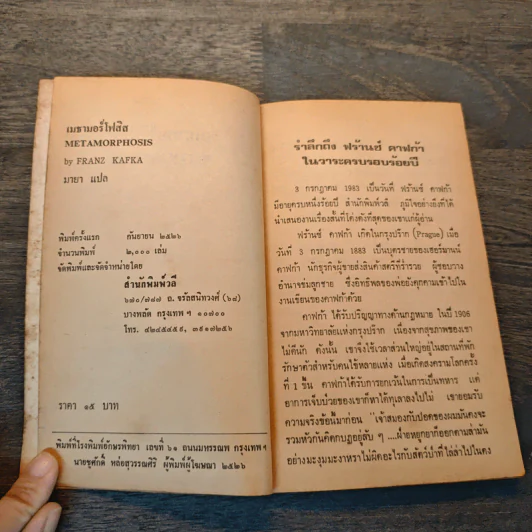 เมธามอร์โฟสิส
METAMORPHOSIS
by FRANZ KAFKA
มายา แปล
พิมพ์ครั้งแรก กันยายน ๒๕๒๖
จำนวนพิมพ์ ๒,๐๐๐ เล่ม
จัดพิมพ์และจัดจำหน่ายโดย
สำนักพิมพ์วลี
๖๘๐/๗๗๗ ถ. จรัลสนิทวงศ์ (๖๘)
บางพลัด กรุงเทพ ฯ ๑๐๗๐๐
โทร. ๔๒๔๕๙๕๔, ๓๙๑๗๒๕๖
ราคา ๑๕ บาท
พิมพ์ที่โรงพิมพ์อักษรพิทยา เลขที่ ๖๑ ถนนมหรรณพ กรุงเทพ ฯ
นายชูศักดิ์ หล่อสุวรรณศิริ ผู้พิมพ์ผู้โฆษณา ๒๕๒๖
รำลึกถึง ฟร้านซ์ คาฟก้า
ในวาระครบรอบร้อยปี
3 กรกฎาคม 1983 เป็นวันที่ ฟร้านซ์ คาฟก้า
มีอายุครบหนึ่งร้อยปี สำนักพิมพ์วลี ภูมิใจอย่างยิ่งที่ได้
นำเสนองานเรื่องสั้นที่โด่งดังที่สุดของเขาแด่ผู้อ่าน
ฟร้านซ์ คาฟก้า เกิดในกรุงปร๊าก (Prague) เมื่อ
วันที่ 3 กรกฎาคม 1883 เป็นบุตรชายของเฮอร์มานน์
คาฟก้า นักธุรกิจผู้ขายส่งสินค้าสตรีที่ร่ำรวย ผู้ชอบวาง
อำนาจข่มลูกชาย ซึ่งอิทธิพลของพ่อยังคุกคามเข้าไปใน
งานเขียนของคาฟก้าด้วย
คาฟก้า ได้รับปริญญาทางด้านกฎหมาย ในปี 1906
จากมหาวิทยาลัยแห่งกรุงปร๊าก เนื่องจากสุขภาพของเขา
ไม่ดีนัก ดังนั้น เขาจึงใช้เวลาส่วนใหญ่อยู่ในสถานที่พัก
รักษาตัวสำหรับคนไข้หลายแห่ง เมื่อเกิดสงครามโลกครั้ง
ที่ 1 ขึ้น คาฟก้าได้รับการยกเว้นในการเป็นทหาร แต่
อาการเจ็บป่วยของเขาก็หาได้ทุเลาลงไปไม่ เขายอมรับ
ความจริงข้อนี้มาก่อน "เจ้าสมองกับปอดของผมมันคงจะ
รวมหัวกันคิดกบฏอยู่ลับ ๆ
อย่างมะงุมมะงาหราไม่ผิดอะไรกับสัตว์ป่าที่